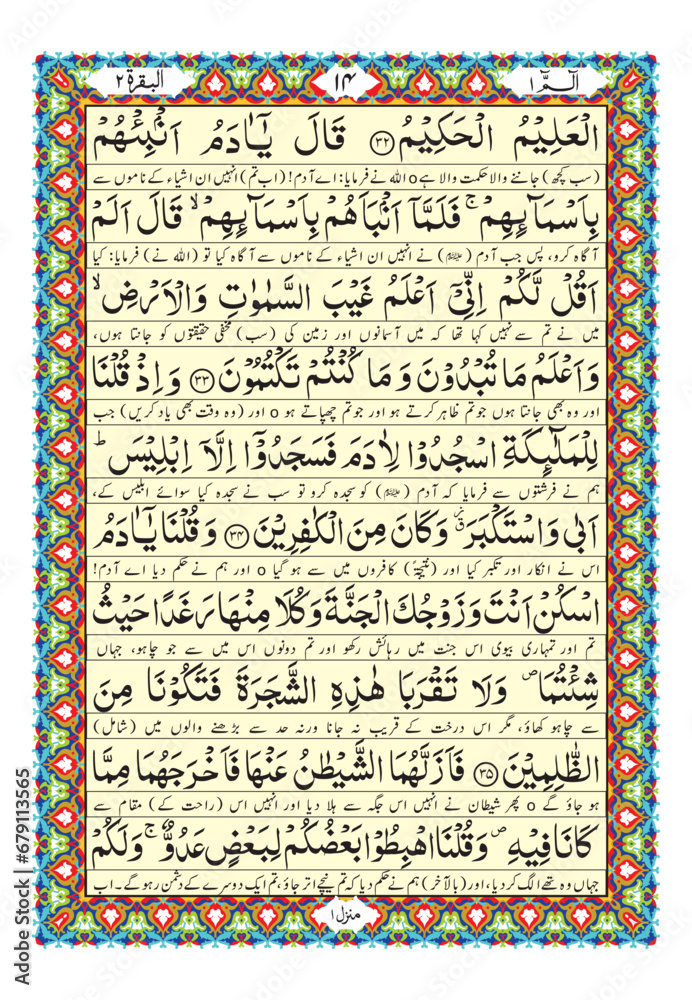 الٓمّٓ ١
١٤
البقرة ٢
الْعَلِیْمُ الْحَكِیْمُ ﴿۳۲﴾ قَالَ یٰۤاٰدَمُ اَنْۢبِئْهُمْ
(سب کچھ) جاننے والا حکمت والا ہے o اللہ نے فرمایا: اے آدم! (اب تم) انہیں ان اشیاء کے ناموں سے
بِاَسْمَآئِهِمْ ۚ فَلَمَّاۤ اَنْۢبَاَهُمْ بِاَسْمَآئِهِمْ ۙ قَالَ اَلَمْ
آگاہ کرو، پس جب آدم (ﷺ) نے انہیں ان اشیاء کے ناموں سے آگاہ کیا تو (اللہ نے) فرمایا: کیا
اَقُلْ لَّكُمْ اِنِّیْۤ اَعْلَمُ غَیْبَ السَّمٰوٰتِ وَالْاَرْضِ ۙ
میں نے تم سے نہیں کہا تھا کہ میں آسمانوں اور زمین کی (سب) مخفی حقیقتوں کو جانتا ہوں،
وَاَعْلَمُ مَا تُبْدُوْنَ وَمَا كُنْتُمْ تَكْتُمُوْنَ ﴿۳۳﴾ وَاِذْ قُلْنَا
اور وہ بھی جانتا ہوں جو تم ظاہر کرتے ہو اور جو تم چھپاتے ہو o اور (وہ وقت بھی یاد کریں) جب
لِلْمَلٰٓئِكَةِ اسْجُدُوْا لِاٰدَمَ فَسَجَدُوْۤا اِلَّاۤ اِبْلِیْسَ ؕ
ہم نے فرشتوں سے فرمایا کہ آدم (ﷺ) کو سجدہ کرو تو سب نے سجدہ کیا سوائے ابلیس کے،
اَبٰی وَاسْتَكْبَرَ ٭ۗ وَكَانَ مِنَ الْكٰفِرِیْنَ ﴿۳۴﴾ وَقُلْنَا یٰۤاٰدَمُ
اس نے انکار اور تکبر کیا اور (نتیجۃً) کافروں میں سے ہو گیا o اور ہم نے حکم دیا اے آدم!
اسْكُنْ اَنْتَ وَزَوْجُكَ الْجَنَّةَ وَكُلَا مِنْهَا رَغَدًا حَیْثُ
تم اور تمہاری بیوی اس جنت میں رہائش رکھو اور تم دونوں اس میں سے جو چاہو، جہاں
شِئْتُمَا ۪ وَلَا تَقْرَبَا هٰذِهِ الشَّجَرَةَ فَتَكُوْنَا مِنَ
سے چاہو کھاؤ، مگر اس درخت کے قریب نہ جانا ورنہ حد سے بڑھنے والوں میں (شامل)
الظّٰلِمِیْنَ ﴿۳۵﴾ فَاَزَلَّهُمَا الشَّیْطٰنُ عَنْهَا فَاَخْرَجَهُمَا مِمَّا
ہو جاؤ گے o پھر شیطان نے انہیں اس جگہ سے ہلا دیا اور انہیں اس (راحت کے) مقام سے
كَانَا فِیْهِ ۪ وَقُلْنَا اهْبِطُوْا بَعْضُكُمْ لِبَعْضٍ عَدُوٌّ ۚ وَلَكُمْ
جہاں وہ تھے الگ کر دیا، اور (بالآخر) ہم نے حکم دیا کہ تم نیچے اتر جاؤ، تم ایک دوسرے کے دشمن رہو گے۔ اب
منزل ١
Adobe Stock | #679113565